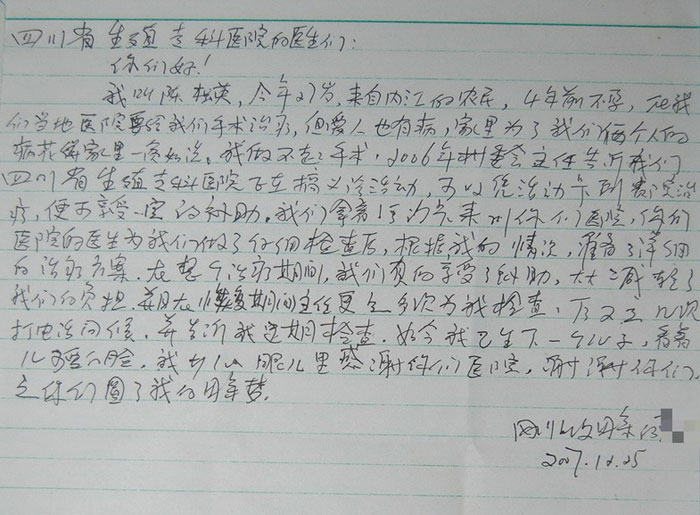 四川省生殖专科医院的医生们:
你们好!
我叫陈桂英,今年27岁,来自内江的农民,4年前不孕,在我
们当地医院要给我们手术治疗,但爱人也有病,家里为了我们俩个人的
病花得家里一贫如洗。我做不起手术,2006年州委会主任告诉我们
四川省生殖专科医院正在搞义诊活动,可以凭活动卡到贵院治
疗,便可享受一定的补助。我们拿着1万元来到你们医院,你们
医院的医生为我们做了仔细检查后,根据我的情况,准备了详细
的治疗方案。在整个治疗期间,我们真的享受了补助,大大减轻了
我们的负担。并在恢复期间主任更是多次为我检查,后又三几次
打电话问候,并告诉我定期检查。如今我已生下一个儿子,看着
儿子的脸,我打从心眼儿里感谢你们医院,谢谢你们,
是你们圆了我的
四川
2007.12.25